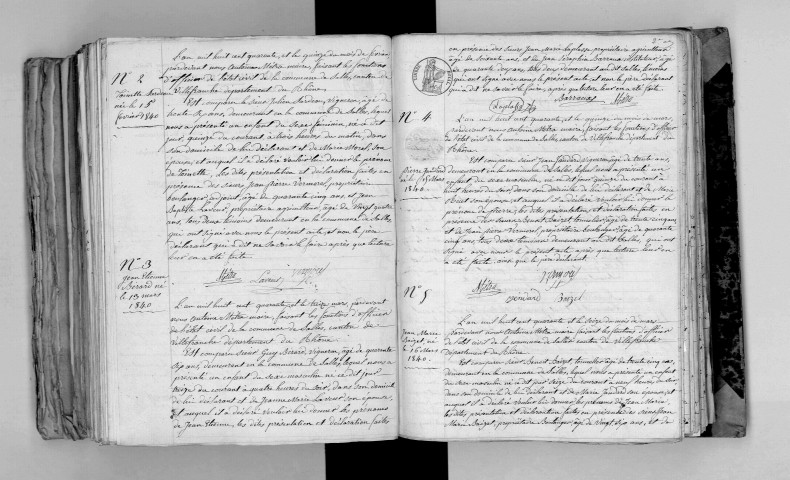 N° 2
né le 15
février 1840
L'an mil huit cent quarante, et le quinze du mois de février
pardevant nous Métra maire, faisant les fonctions
d'officier de l'état civil de la commune de Salles, canton de
Villefranche département du Rhône.
Est comparu le Sieur Julien Sardeau, vigneron, âgé de
trente ans, demeurant en la commune de Salles, lequel
nous a présenté un enfant du sexe féminin, né à dit
jour, quinze du courant, à trois heures du matin, dans
son domicile de lui déclarant et de Marie Morel, son
épouse, et auquel il a déclaré vouloir lui donner le prénom
de Toinette, les dites présentation et déclaration faites en
présence des Sieurs Jean Pierre Vermorel, propriétaire
boulanger, âgé de quarante cinq ans et Jean
Baptiste Laveur, propriétaire agriculteur, âgé de vingt quatre
ans, tous deux demeurant en la commune de Salles,
qui ont signé avec nous le présent acte, et non le père
déclarant qui a dit ne savoir le faire après que lecture
leur en a été faite
Métra Laveur
N° 3
Jean Etienne
Berard né
le 13 mars
1840
L'an mil huit cent quarante, et le treize mars, pardevant
nous Métra maire, faisant les fonctions d'officier
de l'état civil de la commune de Salles, canton de
Villefranche département du Rhône.
Est comparu Sieur Guy Berard, vigneron, âgé de quarante
sept ans, demeurant en la commune de Salles, lequel nous a
présenté un enfant du sexe masculin né ce dit jour
treize du courant à quatre heures du soir, dans son domicile
de lui déclarant et de Jeanne Marie Laveur son épouse,
et auquel il a déclaré vouloir lui donner les prénoms
de Jean Etienne, les dites présentation et déclaration faites
en présence des Sieurs Jean Marie Laplasse propriétaire agriculteur
âgé de soixante ans, et Jean Barraud, âgé
de quarante ans, tous deux demeurant au dit Salles,
qui ont signé avec nous le présent acte et non le père déclarant
qui a dit ne savoir le faire, après que lecture leur en a été faite
Laplasse Barraud Métra
N° 4
né le 15 Mars
1840.
L'an mil huit cent quarante, et le quinze du mois de mars,
pardevant nous Métra maire, faisant les fonctions d'officier
de l'état civil de la commune de Salles canton de Villefranche département du
Rhône.
Est comparu Sieur Jean vigneron, âgé de trente ans,
demeurant en la commune de Salles, lequel nous a présenté un
enfant du sexe masculin, né ce dit jour quinze du courant à
huit heures du soir dans son domicile de lui déclarant et de Marie
son épouse, et auquel il a déclaré vouloir lui donner le
prénom de Pierre, les dites présentation et déclaration faites, en
présence des Sieurs Benoit Baizet, tonnelier, âgé de trente cinq ans
et de Jean Pierre Vermorel propriétaire boulanger, âgé de quarante
cinq ans, tous deux demeurant au dit Salles, qui ont
signé avec nous le présent acte après que lecture leur en
a été faite, ainsi que le père déclarant.
Métra
Baizet
N° 5
Jean Marie
Baizet, né
le 16 Mars
1840.
L'an mil huit cent quarante, et le seize du mois de mars
pardevant nous Métra maire faisant les fonctions d'officier
de l'état civil de la commune de Salles canton de Villefranche
Département du Rhône.
Est comparu Sieur Benoit Baizet, tonnelier, âgé de trente cinq ans,
demeurant en la commune de Salles, lequel nous a présenté un enfant
du sexe masculin né ce dit jour seize du courant à neuf heures du soir,
dans son domicile de lui déclarant et de Marie son épouse, et
auquel il a déclaré vouloir lui donner les prénoms de Jean Marie,
les dites présentation et déclaration faites en présence des Sieurs Jean
Marie Baizet, propriétaire boulanger, âgé de vingt sept ans, et de